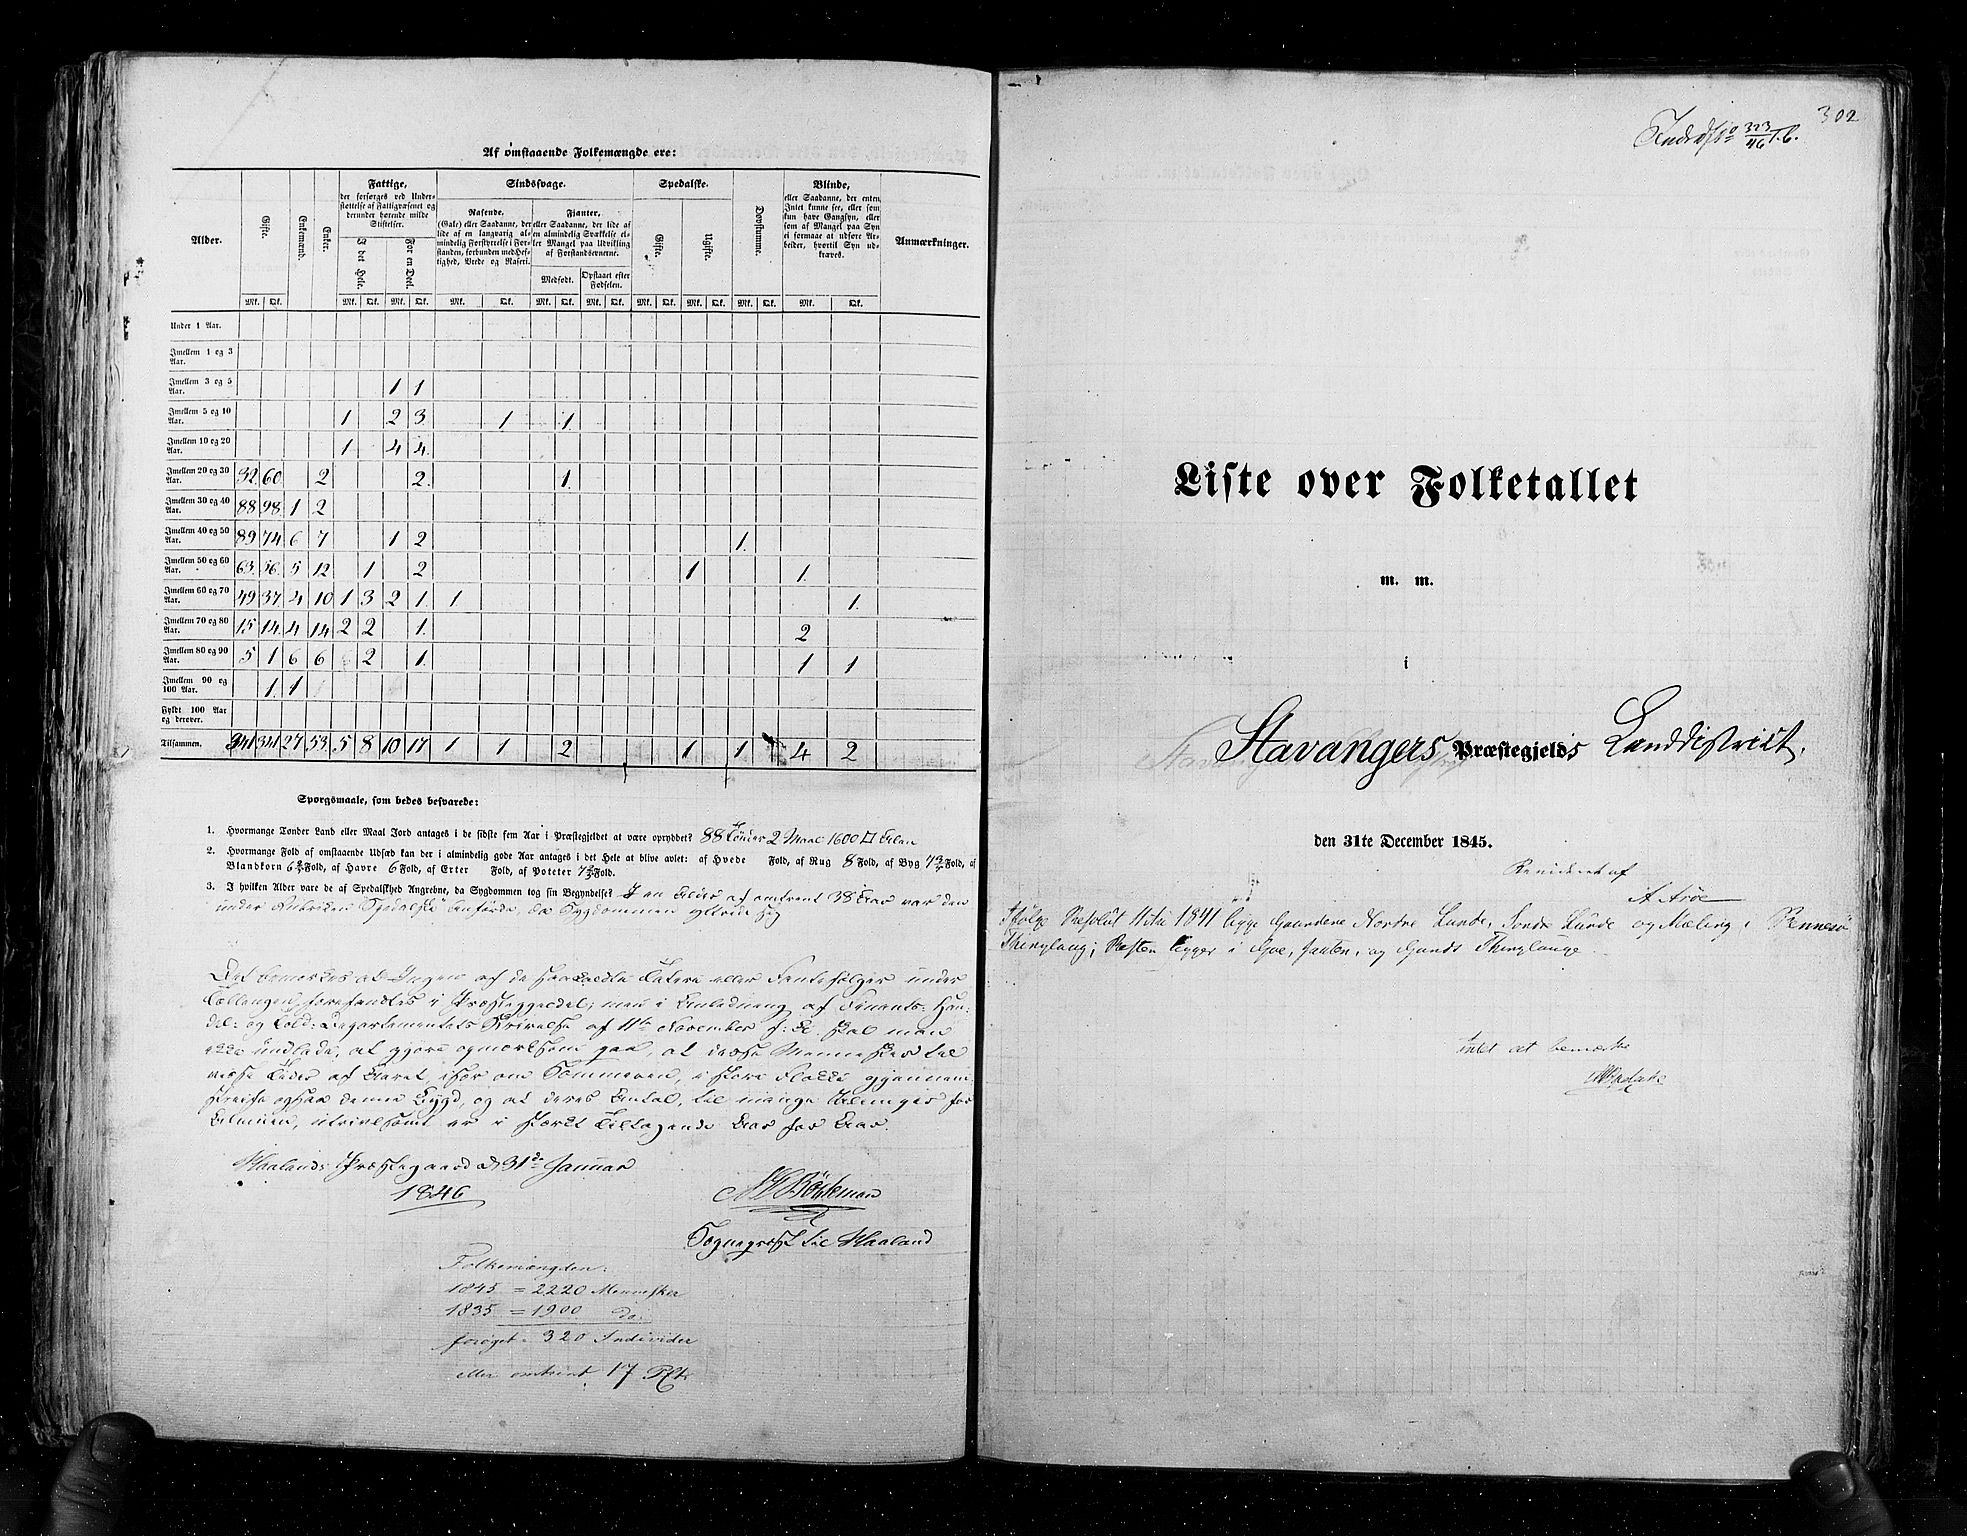 Af omstaaende Folkemængde ere:
Alder. Gifte. Enkemænd. Enker. Fattige, Sindssvage. Spedalske. Døvstumme. Blinde, Anmærkninger.
der forsørges ved Under-
støttelse af Fattigvæsenet og
derunder hørende milde
Stiftelser.
I det Hele. For en Deel.
Rasende,
(Gale) eller Saadanne, der
lide af en langvarig al-
mindelig Forstyrrelse i For-
standen, forbunden med Hef-
tighed, Vrede og Raseri.
Fjanter,
eller Saadanne, der lide af
en almindelig Svækkelse el-
ler Mangel paa Udvikling
af Forstandsevnerne.
Medfødt. Opstaaet efter Fødselen.
Gifte. Ugifte.
eller Saadanne, der enten
Intet kunne see, eller som
kun have Gangsyn, eller
som af Mangel paa Syn
ei formaae at udføre Ar-
beider, hvortil Syn ud-
kræves.
Mk. Qk. Mk. Qk. Mk. Qk. Mk. Qk. Mk. Qk. Mk. Qk. Mk. Qk. Mk. Qk. Mk. Qk. Mk. Qk.
Under 1 Aar.
Imellem 1 og 3 Aar.
Imellem 3 og 5 Aar. 1 1
Imellem 5 og 10 Aar. 1 2 3 1 1
Imellem 10 og 20 Aar. 1 4 4
Imellem 20 og 30 Aar. 32 60 2 2 1
Imellem 30 og 40 Aar. 88 98 1 2
Imellem 40 og 50 Aar. 89 74 6 7 1 2 1
Imellem 50 og 60 Aar. 63 56 5 12 1 2 1 1
Imellem 60 og 70 Aar. 49 37 4 10 1 3 2 1 1 1
Imellem 70 og 80 Aar. 15 14 4 14 2 2 1 2
Imellem 80 og 90 Aar. 5 1 6 6 2 1 1 1
Imellem 90 og 100 Aar. 1 1
Fyldt 100 Aar og derover.
Tilsammen. 341 341 27 53 5 8 10 17 1 1 2 1 1 4 2
Spørgsmaale, som bedes besvarede:
1. Hvormange Tønder Land eller Maal Jord antages i de sidste fem Aar i Præstegjeldet at være opryddet? 88 Tønder 2 Maal 1600 □ Alen
2. Hvormange Fold af omstaaende Udsæd kan der i almindelig gode Aar antages i det Hele at blive avlet: af Hvede Fold, af Rug 8 Fold, af Byg 7 Fold, af
Blandkorn 6 Fold, af Havre 6 Fold, af Erter Fold, af Poteter 7 Fold.
3. I hvilken Alder vare de af Spedalskhed Angrebne, da Sygdommen tog sin Begyndelse? I en Alder af omtrent 38 Aar var den
under Rubriken Spedalske anførde, da Sygdommen yttrede sig
Det bemærkes at Ingen af de saakaldte Tatere eller Fantefølger under
Tællingen forefandtes i Præstegjeldet; men i Anledning af Finants- Han-
del- og Told-Departementets Skrivelse af 11te November f: A: skal man
ikke undlade, at gjøre opmærksom paa, at disse Mennesker til
visse Tider af Aaret, især om Sommeren, i store Flokke gjennem-
streife ogsaa denne Bygd, og at deres Antal, til mange Ulemper for
Almuen, utvivlsomt er i stærkt Tiltagende Aar for Aar.
Haalands Præstegaard d. 31de Januar
1846
Sognepræst til Haaland
Folkemængden:
1845 = 2220 Mennesker
1835 = 1900 do:
forøget = 320 Individer
eller omtrent 17 Pct.
302
323/46
Liste over Folketallet
m. m.
i
Stavangers Præstegjelds Landdistrikt.
den 31te December 1845.
Revideret af
A Arøe
Ifølge Resolut 1841 ligge Gaardene Nordre Lunde, Søndre Lunde og Mæling i Rennesø
Thinglaug; Resten ligger i Thinglauge
Intet at bemærke